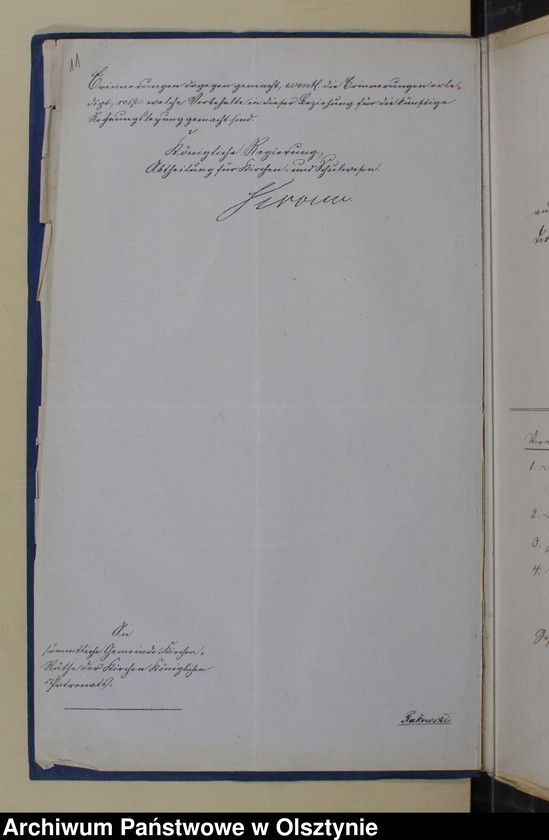 11
Erinnerungen dagegen gemacht, event. die Erinnerungen erle-
digt, resp: welche Vorbehalte in dieser Beziehung für die künftige
Rechnungslegung gemacht sind.
Königliche Regierung,
Abtheilung für Kirchen- und Schulwesen.
An
sämmtliche Gemeinde-Kirchen-
Räthe der Kirchen Königlichen
Patronats.
Rakowski
1.
2.
3.
4.
Archiwum Państwowe w Olsztynie